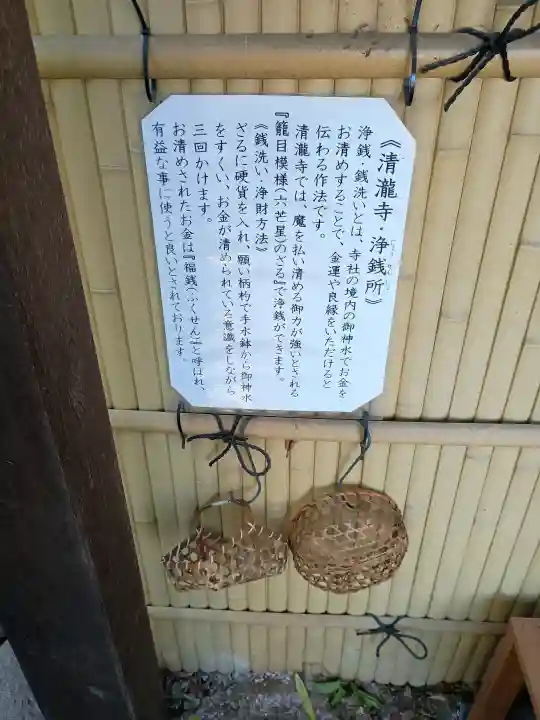 《清瀧寺・浄銭所》
浄銭・銭洗いとは、寺社の境内の御神水でお金を
お清めすることで、金運や良縁をいただけると
伝わる作法です。
清瀧寺では、魔を払い清める御力が強いとされる
『籠目模様(六芒星)のざる』で浄銭ができます。
《銭洗い・浄財方法》
ざるに硬貨を入れ、願い柄杓で手水鉢から御神水
をすくい、お金が清められている意識をしながら
三回かけます。
お清めされたお金は『福銭(ふくせん)』と呼ばれ、
有益な事に使うと良いとされております。